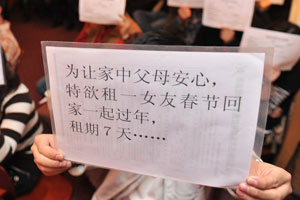 为让家中父母安心，
特欲租一女友春节回
家一起过年，
租期7天……